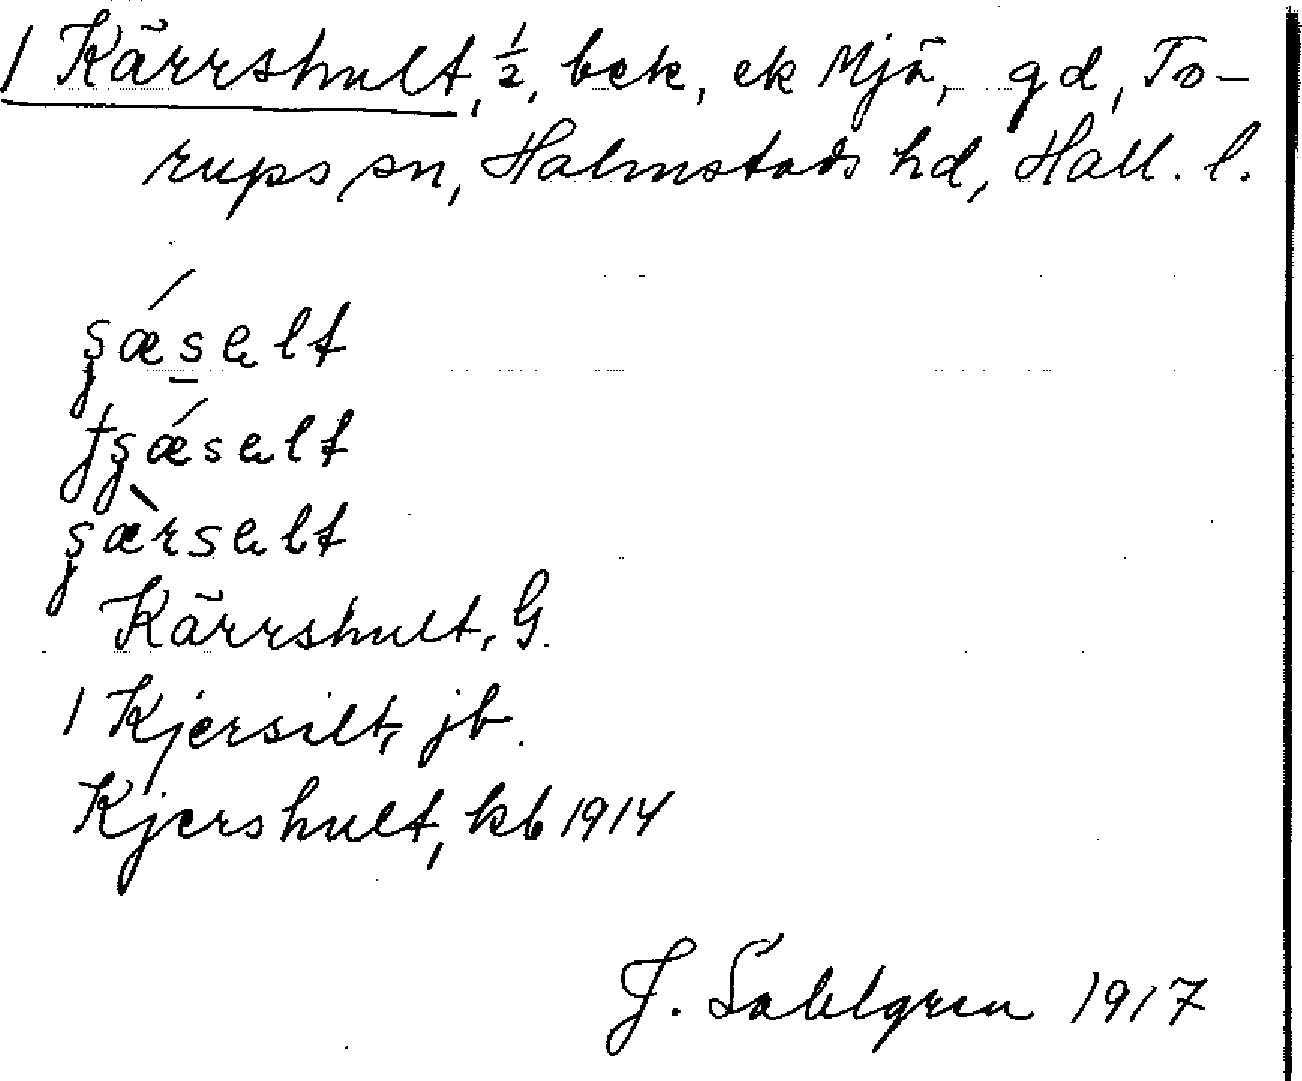 1 Kärrshult, ½, bek, ek Mjä, gd, To-
rups sn, Halmstads hd, Hall. l.
Kärrshult, G.
1 Kjersilt, jb.
Kjershult, kb 1914
J. Sahlgren 1917